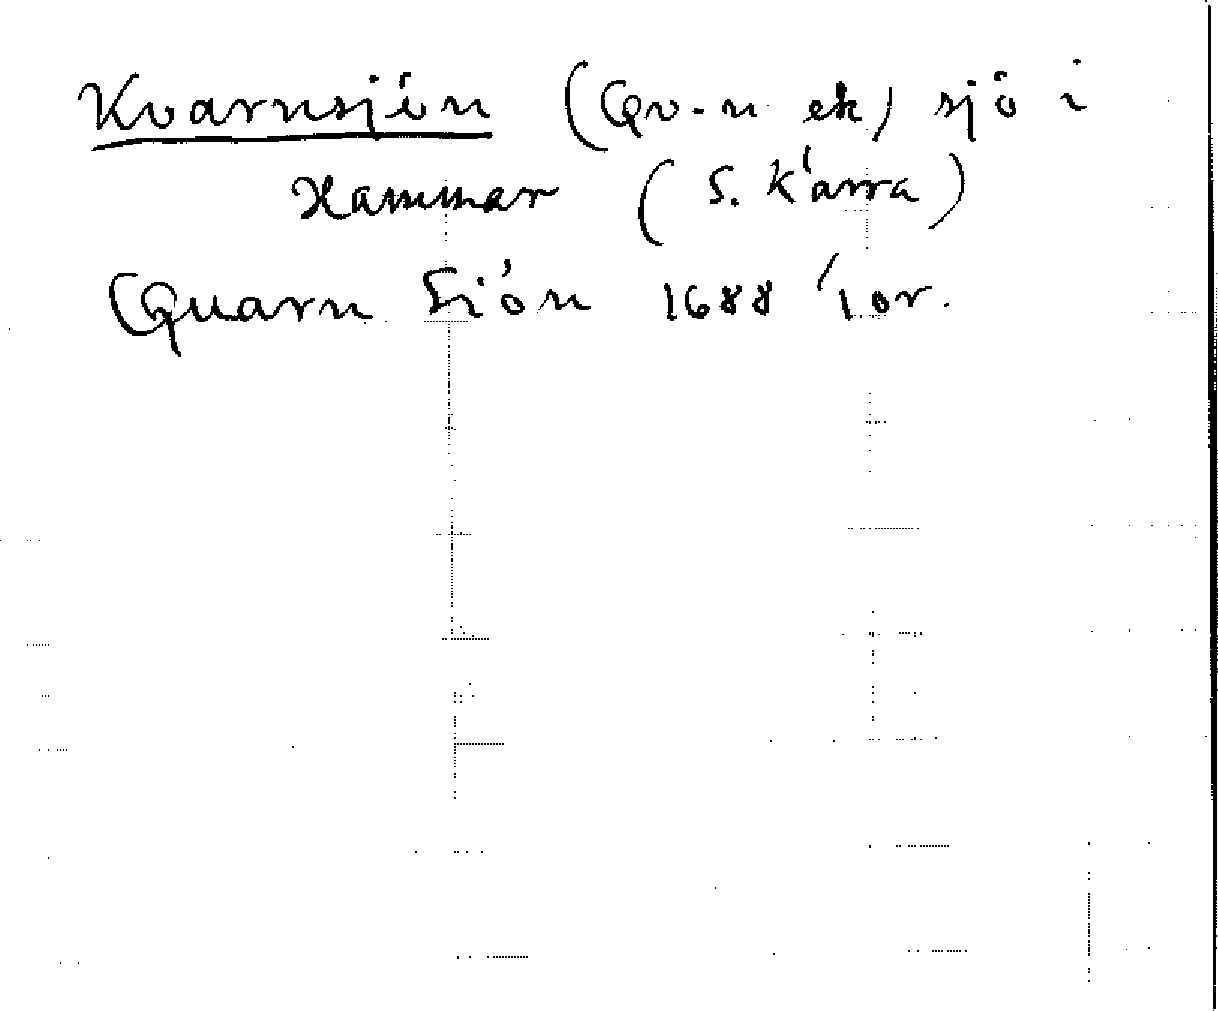 Kvarnsjön (Qv-n ek) sjö i
Hammar (S. Kärra)
Quarn Siön 1688 lor.